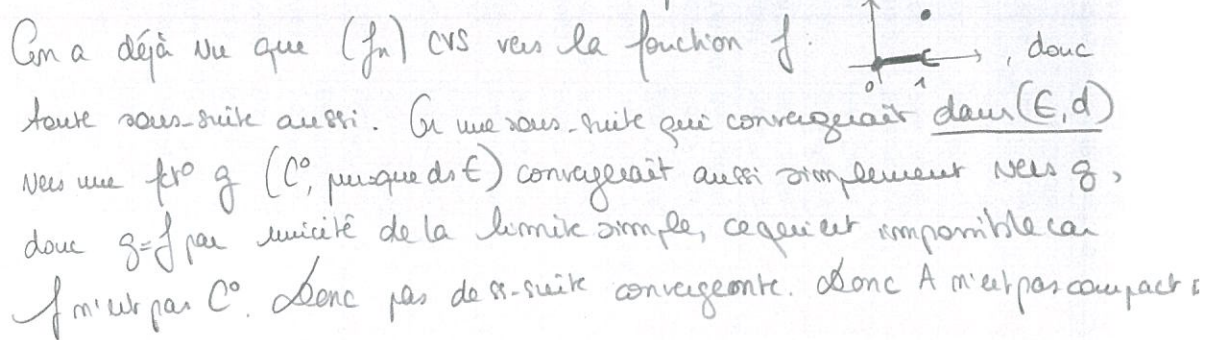 On a déjà vu que (fn) CVS vers la fonction f : 0 1 , donc
toute sous-suite aussi. Or une sous-suite qui convergerait dans (E, d)
vers une fct° g (C°, puisque ds E) convergerait aussi simplement vers g,
donc g=f par unicité de la limite simple, ce qui est impossible car
f n'est pas C°. Donc pas de ss-suite convergente. Donc A n'est pas compact.